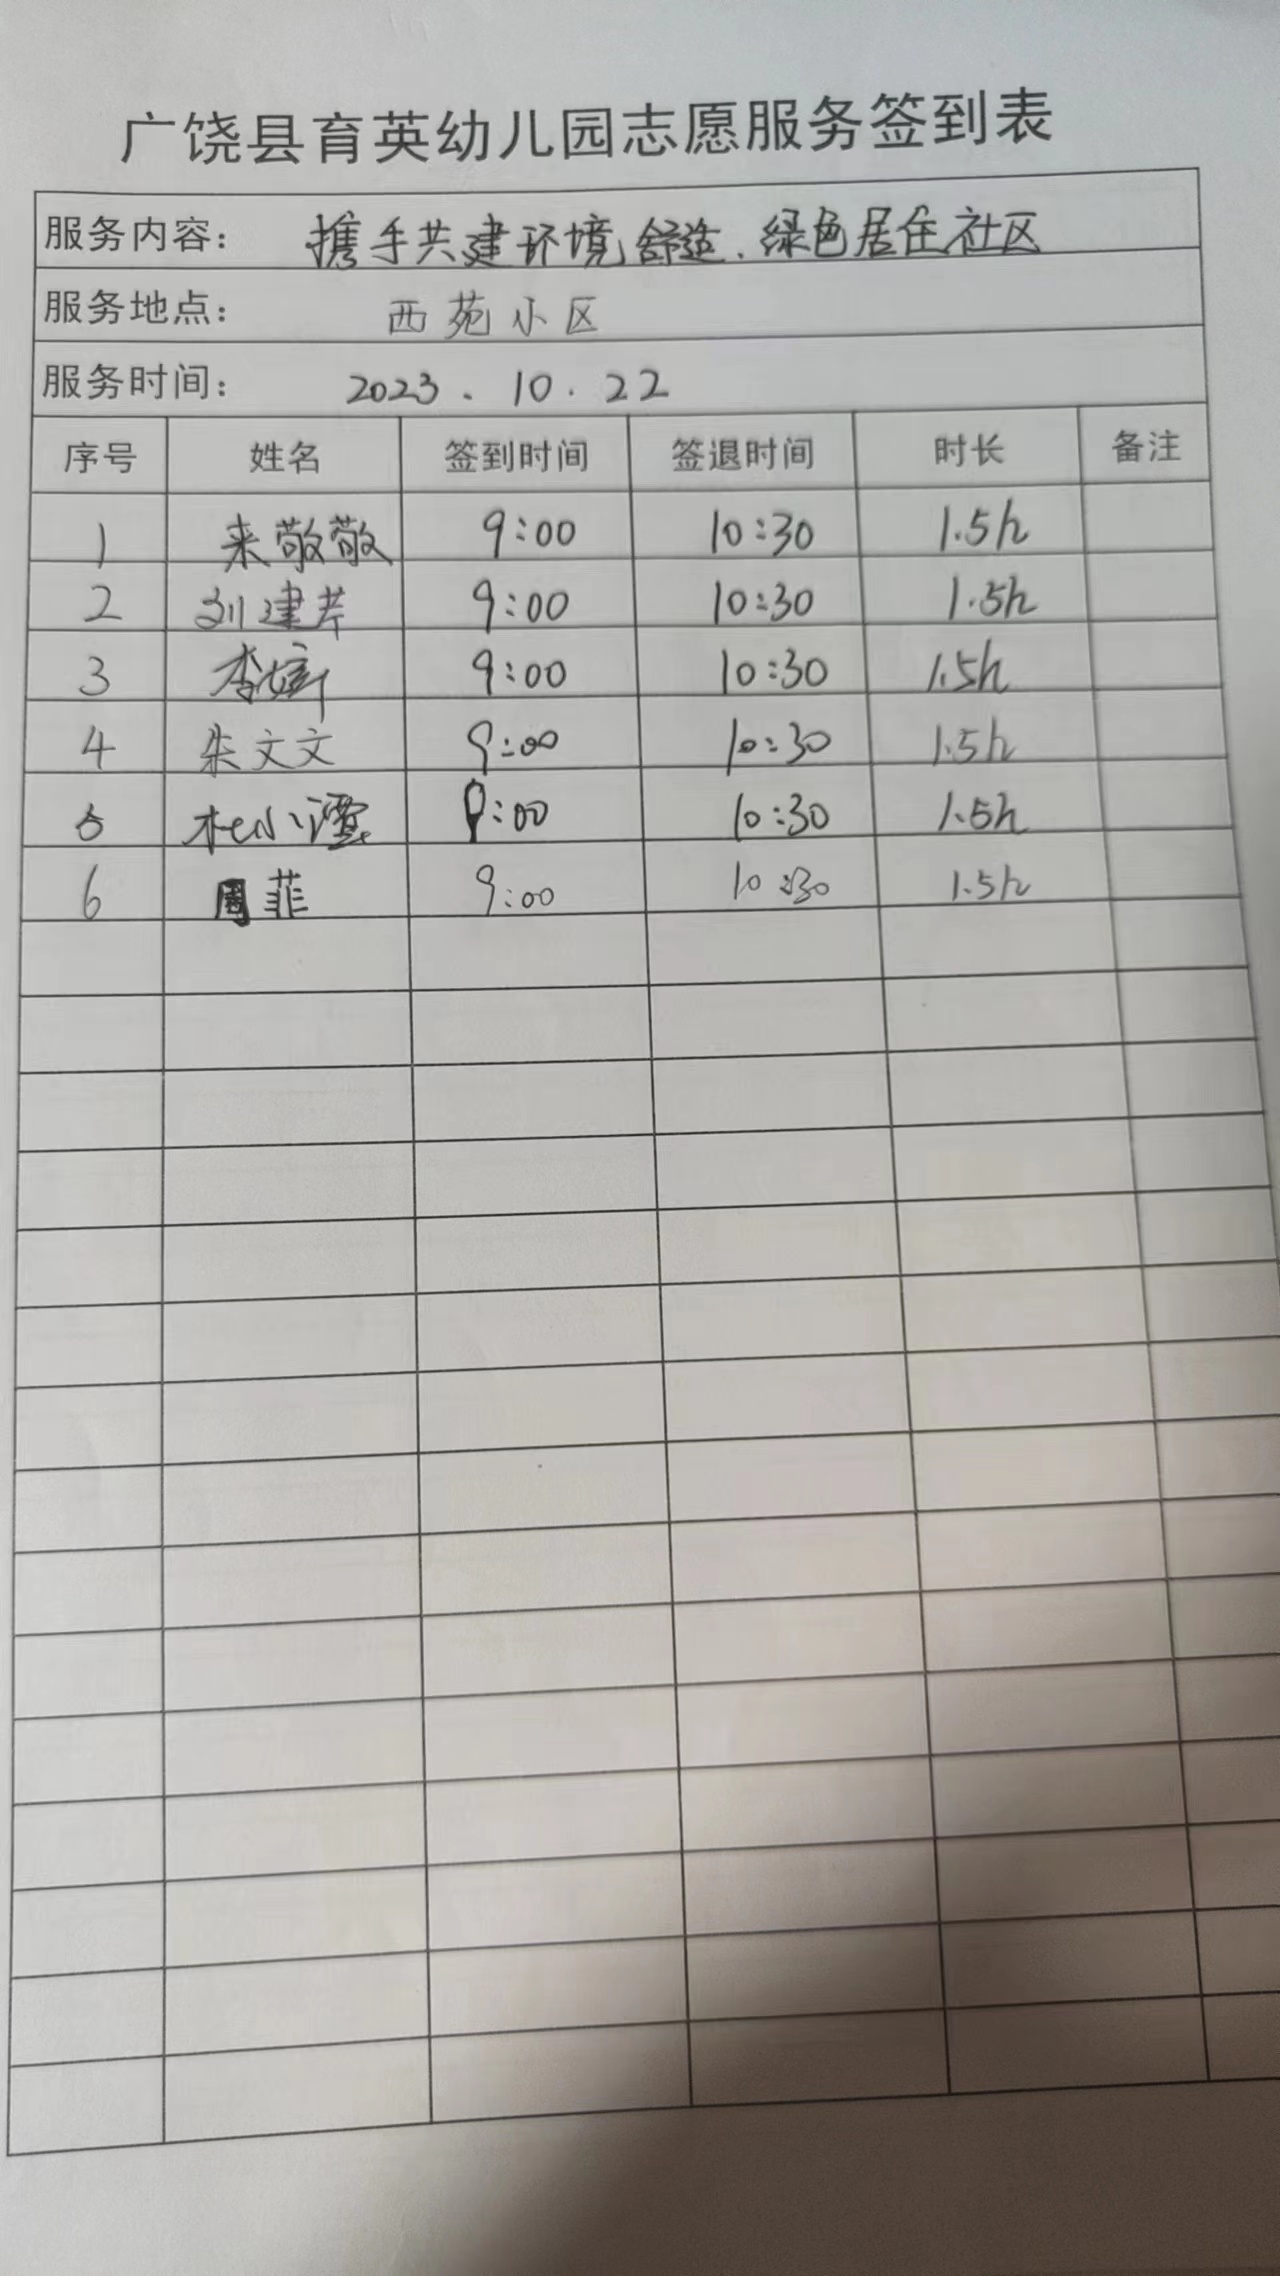 广饶县育英幼儿园志愿服务签到表
服务内容： 携手共建环境舒适、绿色居住社区
服务地点： 西苑小区
服务时间： 2023.10.22
序号 姓名 签到时间 签退时间 时长 备注
1 来敬敬 9:00 10:30 1.5h
2 刘建芹 9:00 10:30 1.5h
3 李婷 9:00 10:30 1.5h
4 朱文文 9:00 10:30 1.5h
5 杜小 9:00 10:30 1.5h
6 周菲 9:00 10:30 1.5h